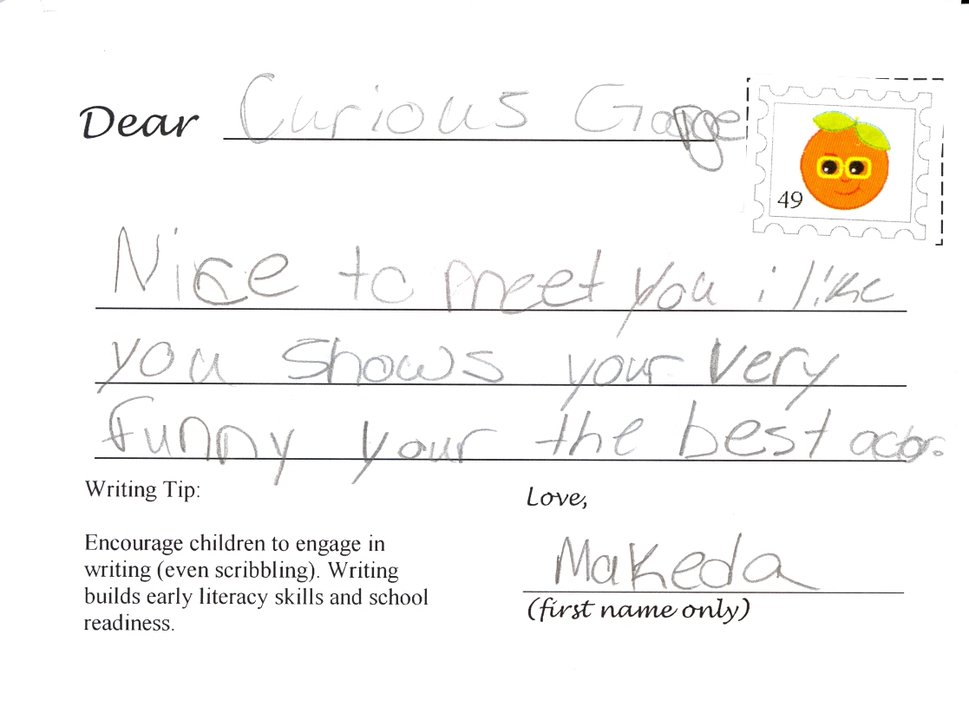 Dear Curious Goorge
49
Nice to meet you i like
you shows your very
funny your the best actor.
Writing Tip:
Encourage children to engage in
writing (even scribbling). Writing
builds early literacy skills and school
readiness.
Love,
Makeda
(first name only)